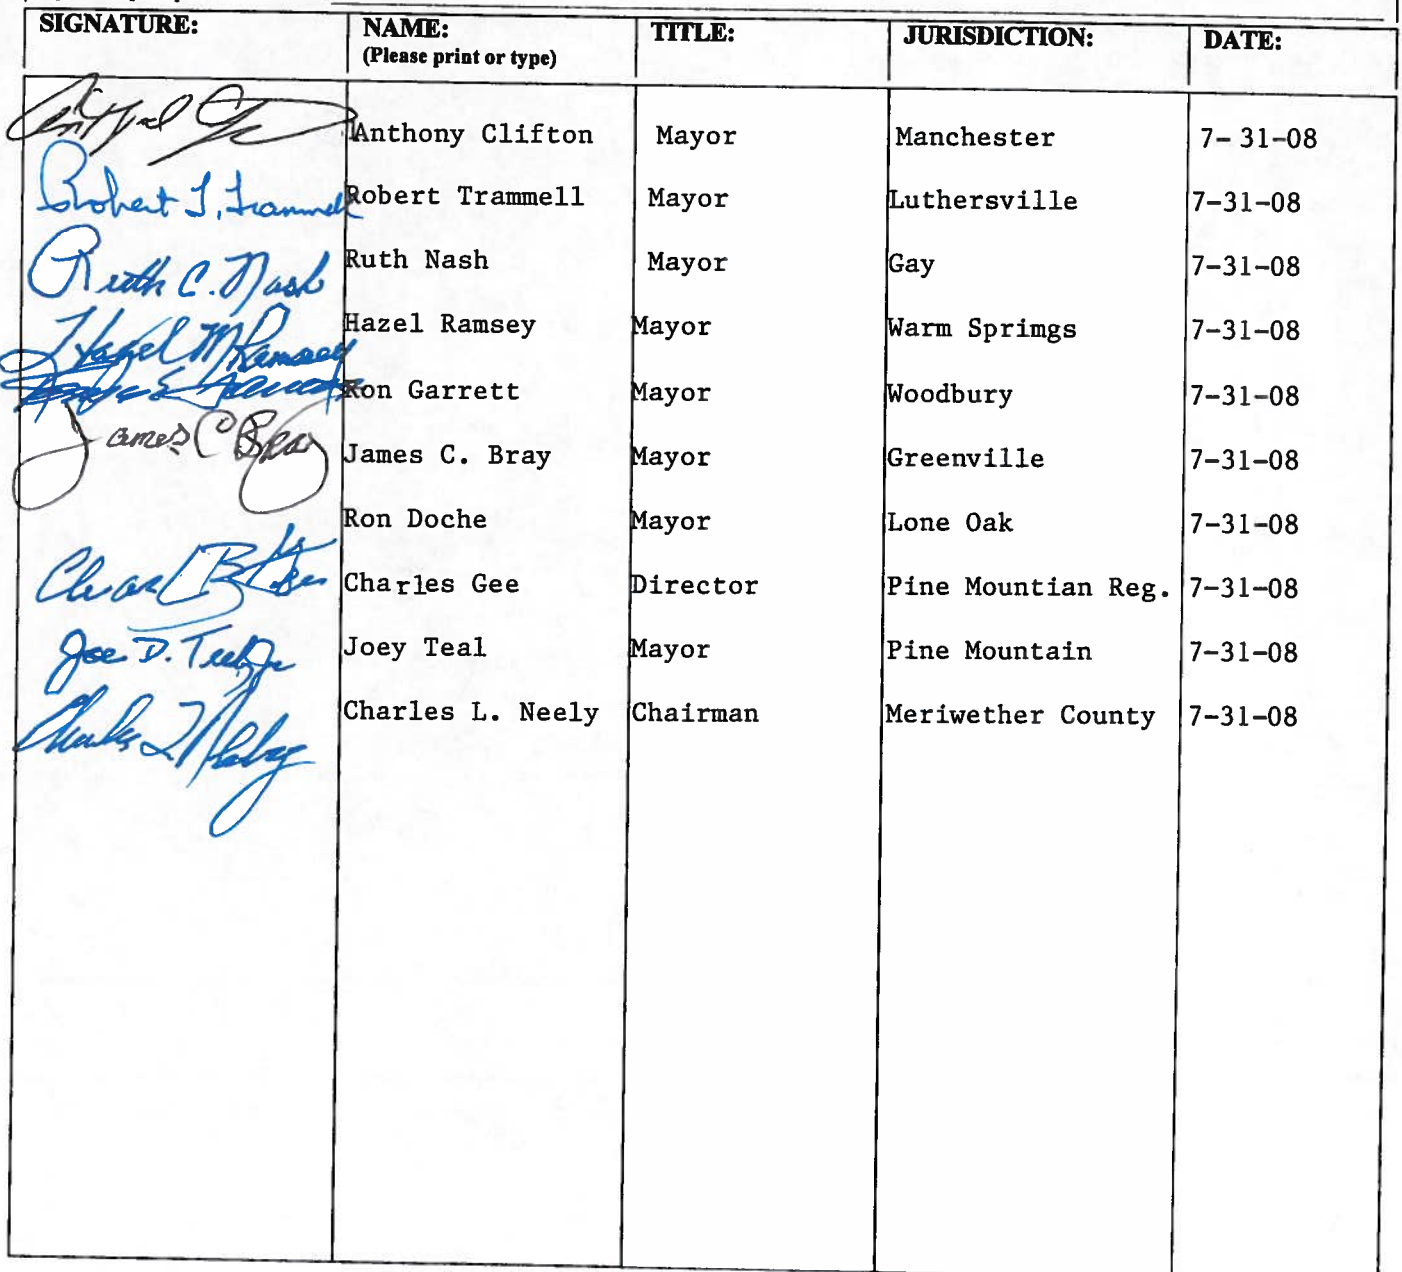 SIGNATURE: NAME: TITLE: JURISDICTION: DATE:
(Please print or type)
Anthony Clifton Mayor Manchester 7- 31-08
Robert T. Trammell Robert Trammell Mayor Luthersville 7-31-08
Ruth C. Nash Ruth Nash Mayor Gay 7-31-08
Hazel M Ramsey Hazel Ramsey Mayor Warm Sprimgs 7-31-08
Ron Garrett Mayor Woodbury 7-31-08
James C Bray James C. Bray Mayor Greenville 7-31-08
Ron Doche Mayor Lone Oak 7-31-08
Charles Gee Director Pine Mountian Reg. 7-31-08
Joe D. Teal Jr Joey Teal Mayor Pine Mountain 7-31-08
Charles L Neely Charles L. Neely Chairman Meriwether County 7-31-08